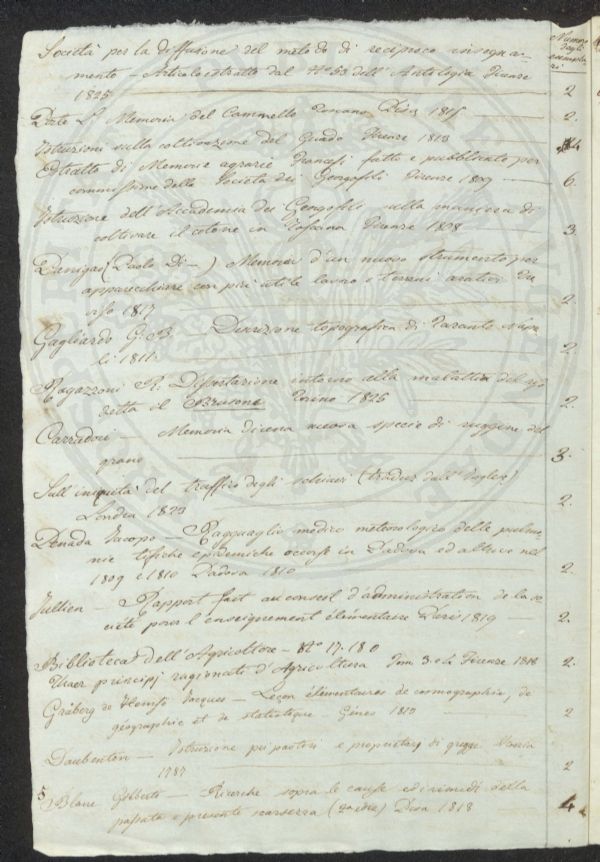 Numero
degli
esempla
ri
Società per la diffusione del metodo di reciproco insegna-
mento — Articolo estratto dal N.o 53 dell'Antologia Firenze
1825 2
L. Memoria del Cammello Toscano Pisa 1815 2.
Istruzioni sulla coltivazione del Guado Firenze 1813
Estratto di Memorie agrarie francesi fatto e pubblicato per
commissione della Società dei Georgofili Firenze 1809 — 6.
Istruzione dell'Accademia dei Georgofili sulla maniera di
coltivare il cotone in Toscana Firenze 1808 — 3
(Paolo Di —) Memoria d'un nuovo strumento per
apparecchiare con più utile lavoro i terreni
1817 2
Gagliardo G. B. Descrizione topografica di Taranto Napo-
li 1811 — 2.
Ragazzoni R. Dissertazione intorno alla malattia del riso
detta il Brusone Torino 1825 2.
Carradori — Memoria di una nuova specie di ruggine del
grano 3.
Sull'iniquità del traffico degli schiavi (traduz dall'Inglese)
Londra 1823 2.
Penada Jacopo — Ragguaglio medico meteorologico delle
tifiche epidemiche occorse in Padova ed altrove nel
1809 e 1810 Padova 1810 2.
Jullien — Rapport fait au conseil d'administration de la so-
ciété pour l'enseignement élémentaire Paris 1819 — 2.
Biblioteca dell'Agricoltore — N.o 17. 18
principj ragionati d'Agricoltura Tom 3. Firenze 1818 2.
Gräberg de Hemsö Jacques — Leçon élémentaires de cosmographie, de
géographie et de statistique — Gênes 1813 2
Daubenton — Istruzione pei pastori e proprietarj di gregge
1787 2
Blane Gilberto — Ricerche sopra le cause ed i rimedi della
passata e presente scarsezza Pisa 1818 4